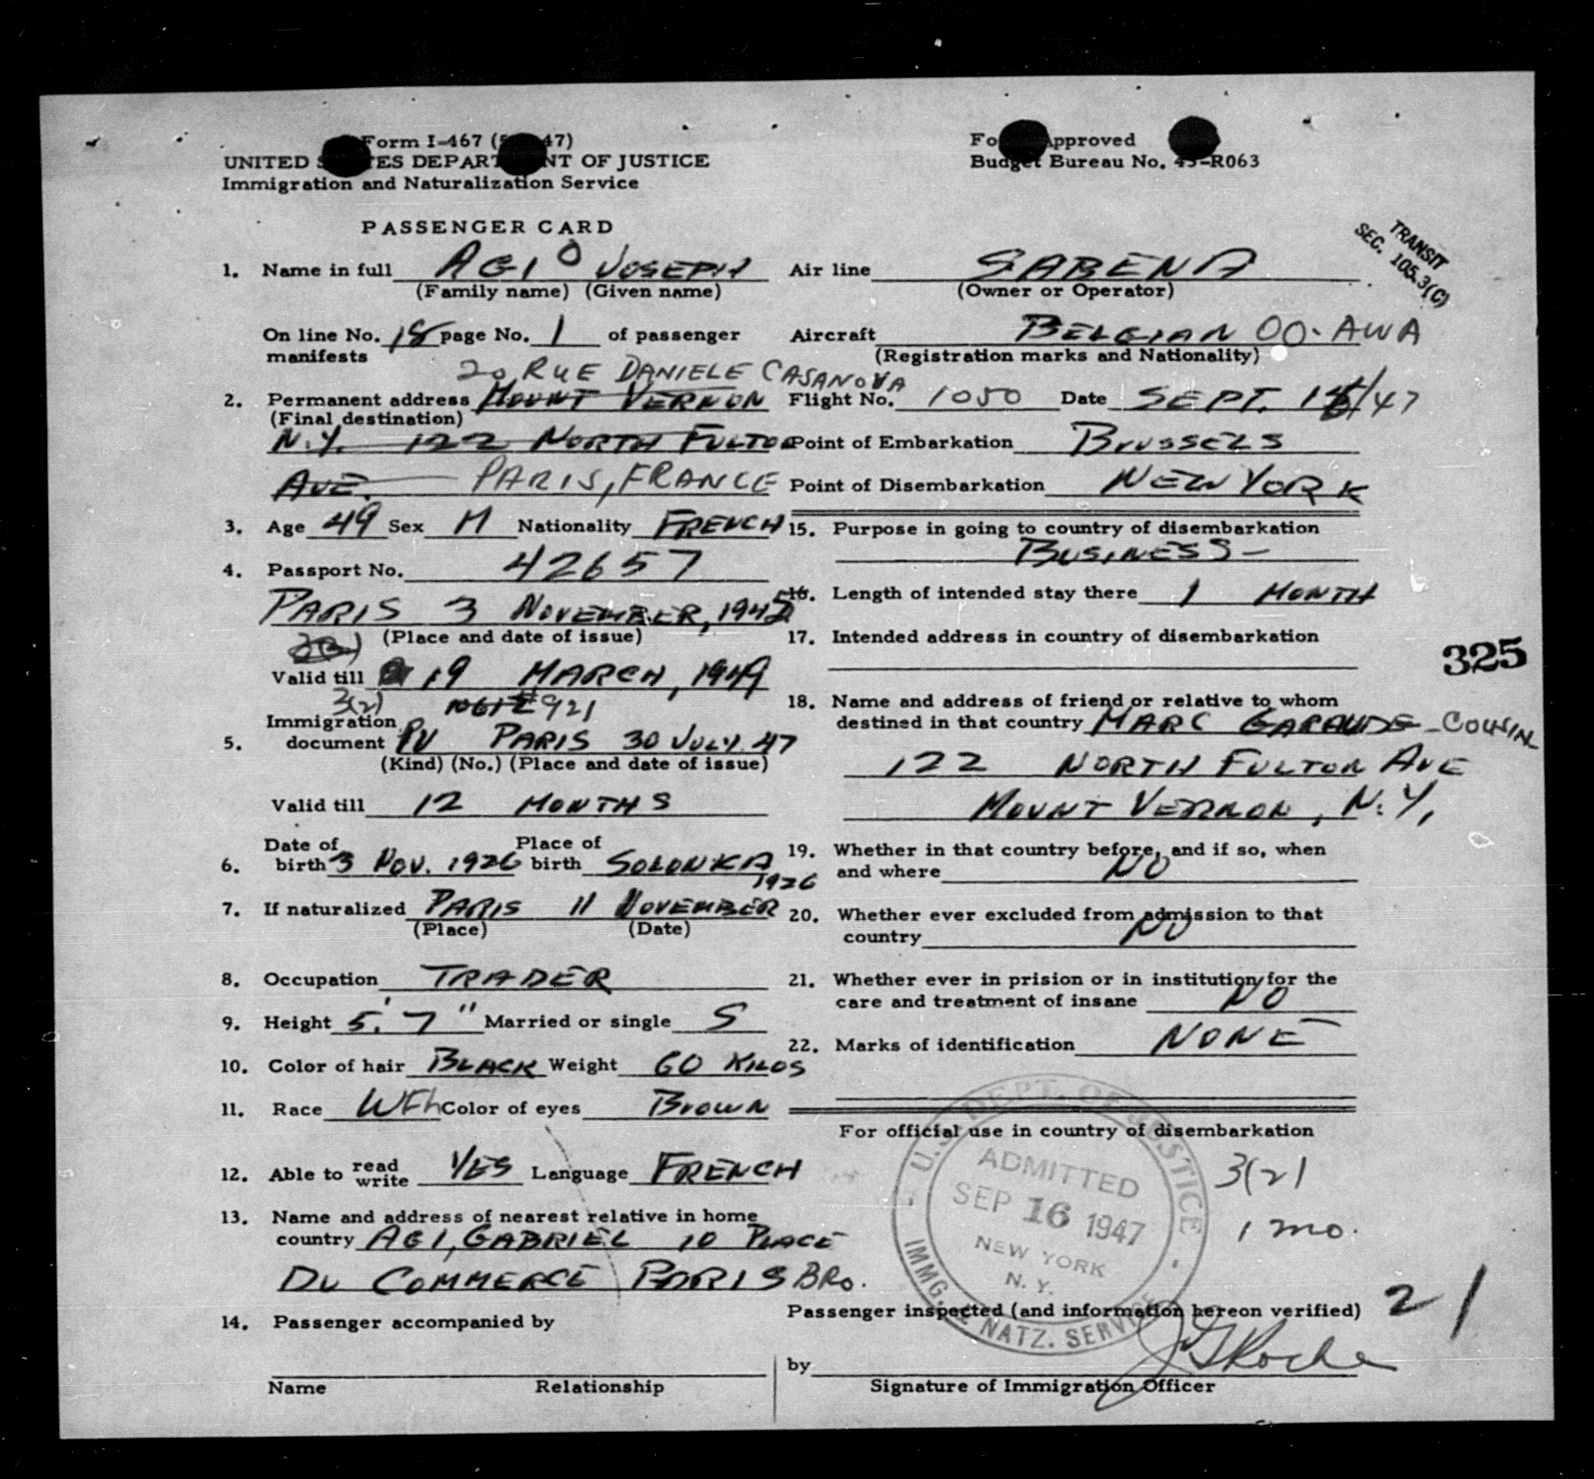 Form I-467 ( 47)
UNITED STATES DEPARTMENT OF JUSTICE
Immigration and Naturalization Service
Form Approved
Budget Bureau No. 43-R063
PASSENGER CARD
TRANSIT
SEC. 105.3(C)
1. Name in full AGI O JOSEPH
(Family name) (Given name)
On line No. 18 page No. 1 of passenger
manifests
20 RUE DANIELE CASANOVA
2. Permanent address MOUNT VERNON
(Final destination)
N.Y. 122 NORTH FULTON
AVE. PARIS, FRANCE
3. Age 49 Sex M Nationality FRENCH
4. Passport No. 42657
PARIS 3 NOVEMBER, 1945
(Place and date of issue)
Valid till 19 MARCH, 1949
3(2) 921
Immigration
5. document PV PARIS 30 JULY 47
(Kind) (No.) (Place and date of issue)
Valid till 12 MONTHS
Date of Place of
6. birth 3 NOV. 1926 birth SOLONKA
1926
7. If naturalized PARIS 11 NOVEMBER
(Place) (Date)
8. Occupation TRADER
9. Height 5' 7" Married or single S
10. Color of hair BLACK Weight 60 KILOS
11. Race Color of eyes BROWN
12. Able to read write YES Language FRENCH
13. Name and address of nearest relative in home
country AGI, GABRIEL 10 PLACE
DU COMMERCE PARIS BRO.
14. Passenger accompanied by
Name Relationship
Air line SABENA
(Owner or Operator)
Aircraft BELGIAN OO-AWA
(Registration marks and Nationality)
Flight No. 1050 Date SEPT. 16/47
Point of Embarkation BRUSSELS
Point of Disembarkation NEW YORK
15. Purpose in going to country of disembarkation
BUSINESS -
16. Length of intended stay there 1 MONTH
17. Intended address in country of disembarkation
325
18. Name and address of friend or relative to whom
destined in that country MARC - COUSIN
122 NORTH FULTON AVE
MOUNT VERNON, N.Y.
19. Whether in that country before, and if so, when
and where NO
20. Whether ever excluded from admission to that
country NO
21. Whether ever in prision or in institution for the
care and treatment of insane NO
22. Marks of identification NONE
For official use in country of disembarkation
U.S. DEPT. OF JUSTICE
ADMITTED
SEP 16 1947
NEW YORK
N.Y.
IMMG. & NATZ. SERVICE
3(2)
1 mo.
Passenger inspected (and information hereon verified)
21
by
Signature of Immigration Officer